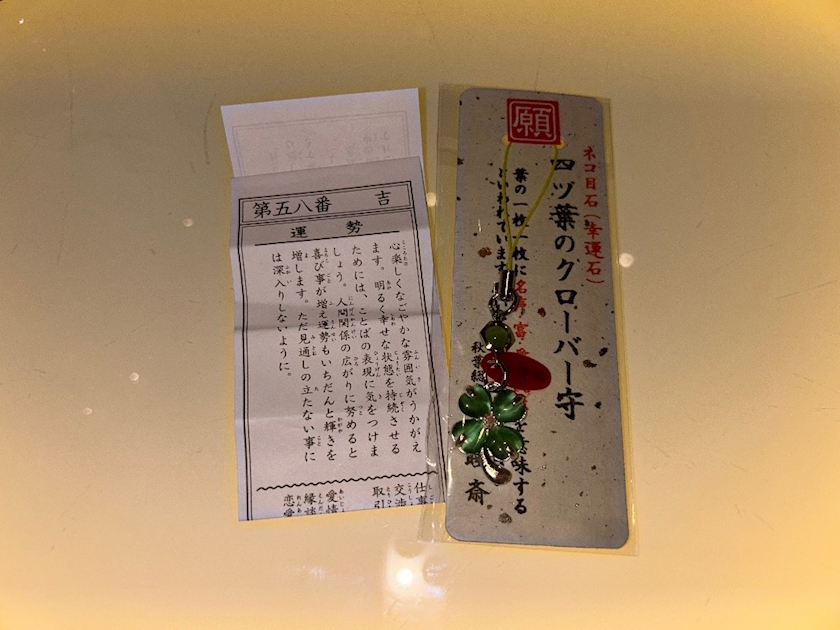 第五八番 吉
運勢
心楽しくなごやかな雰囲気がうかがえ
ます。明るく幸せな状態を持続させる
ためには、ことばの表現に気をつけま
しょう。人間関係の広がりに努めると
喜び事が増え運勢もいちだんと輝きを
増します。ただ見通しの立たない事に
は深入りしないように。
仕事
交渉
取引
愛情
縁談
恋愛
願
ネコ目石(幸運石)
四ツ葉のクローバー守
葉の一枚一枚に名誉・富・を意味する
といわれています
秋葉 斎